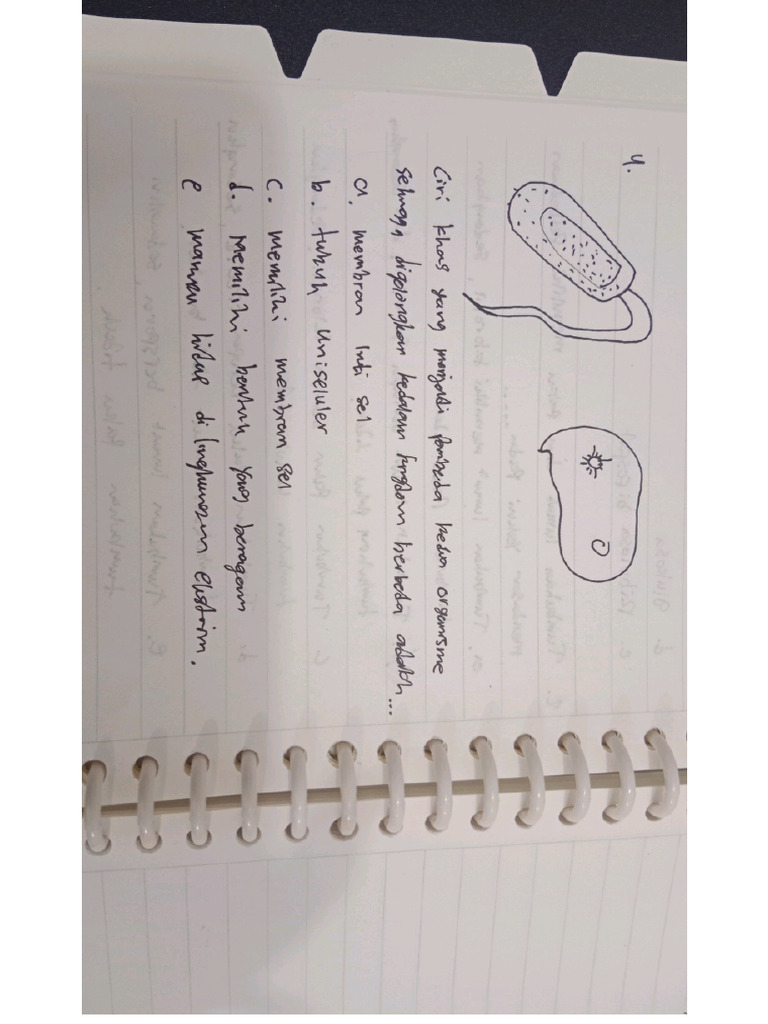 4.
Ciri khas yang menjadi pembeda kedua organisme
sehingga digolongkan kedalam kingdom berbeda adalah...
a. membran inti sel
b. tubuh uniseluler
c. memiliki membran sel
d. Memiliki bentuk yang beragam
e mampu hidup di lingkungan ekstrim.